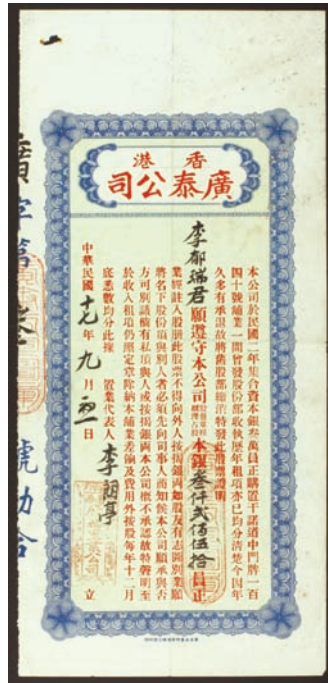 香港
廣泰公司
本公司於民國二年集合資本銀叁萬員正購置干諾道中門牌一百
四十號舖業一間曾發股份部收執歷年租項亦已均分清楚今因年
久多有承讓故將舊股部繳消特發此股票證明
李郁瑞君願遵守本公司 本銀叁仟貳佰伍拾員正
業經註入股册此股票不得向外人按揭銀両如股友有志圖別業願
將名下股份項與別人者必須先向司事人商知候本公司願承與否
方可別議倘有私項與人或按揭銀両本公司概不承認故特聲明至
於收入租項仍照定章除納本舖業差餉及費用外按股每年十二月
底悉數均分此據
置業代表人 李朗亭
中華民國十七年九月 日 立
號 合